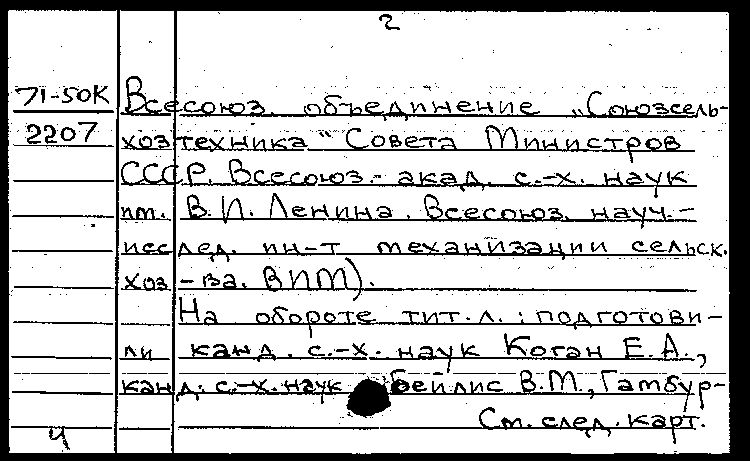 2
71-50К Всесоюз. объединение „Союзсель-
2207 хозтехника“ Совета Министров
СССР. Всесоюз. акад. с.-х. наук
им. В.И. Ленина. Всесоюз. науч.-
исслед. ин-т механизации сельск.
хоз-ва. ВИМ).
На обороте тит.л.: подготови-
ли канд. с.-х. наук Коган Е.А.,
канд. с.-х. наук Бейлис В.М., Гамбур-
См. след. карт.
ч